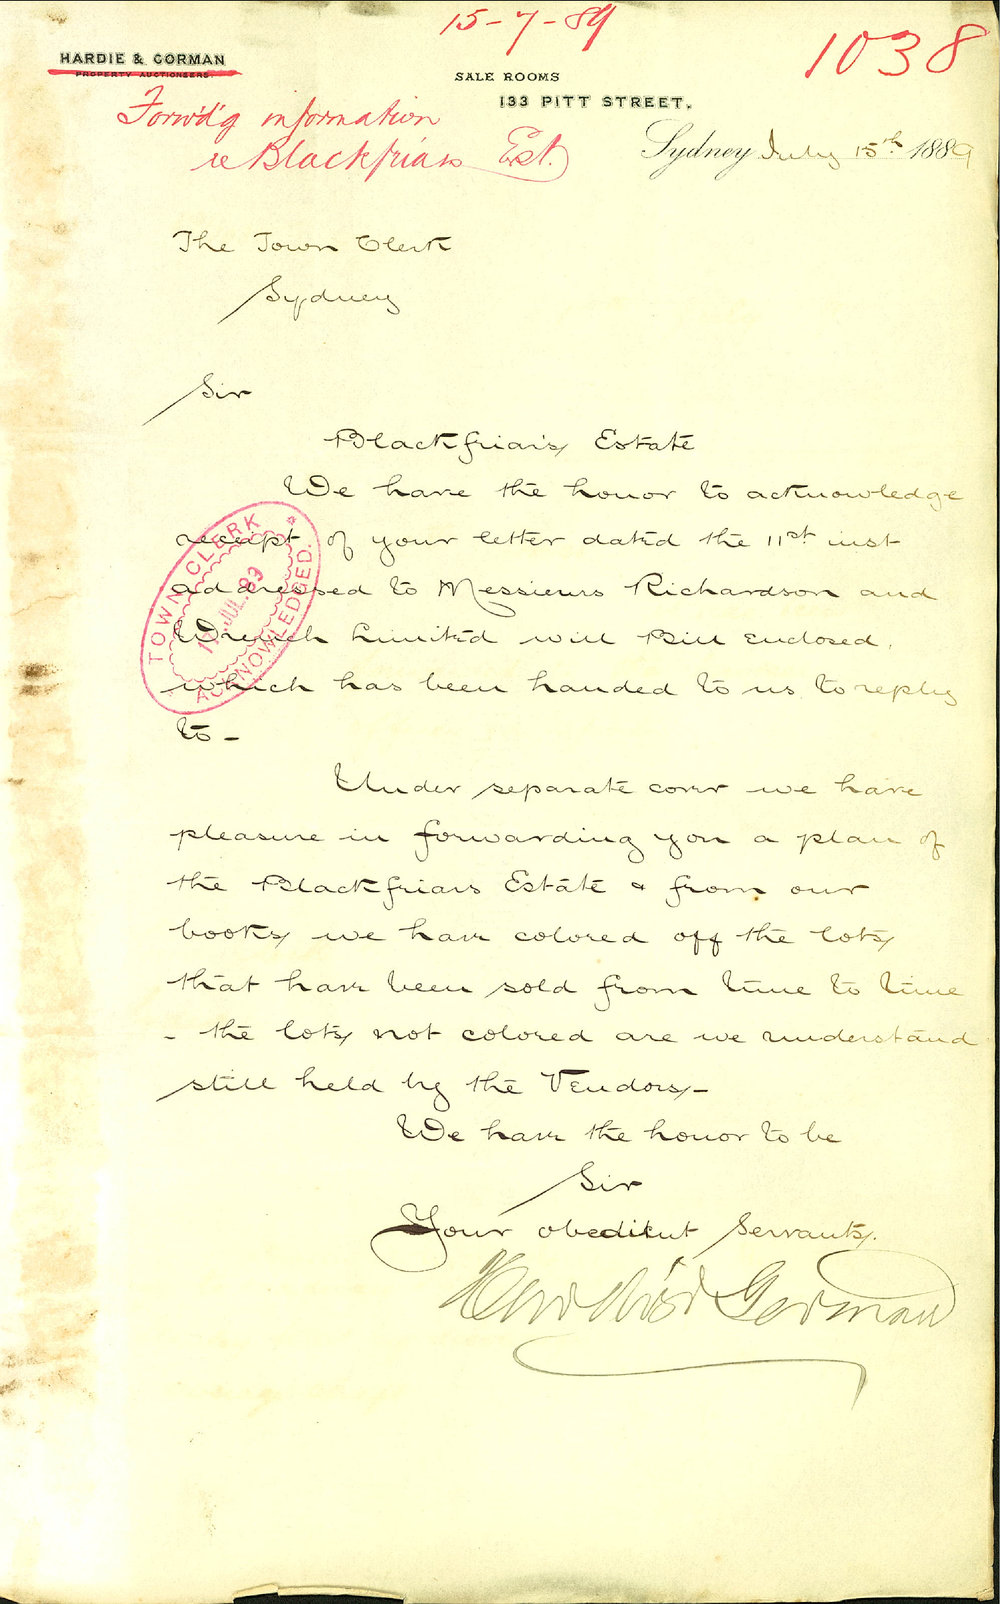 15-7-89
1038
HARDIE & GORMAN
PROPERTY AUCTIONEERS.
SALE ROOMS
133 PITT STREET.
Forwd'g information
re Blackfriars Est.
Sydney July 15th 1889
The Town Clerk
Sydney
Sir
Blackfriars Estate
We have the honor to acknowledge
receipt of your letter dated the 11st inst
addressed to Messieurs Richardson and
Wrench Limited with Bill enclosed,
which has been handed to us to reply
to -
TOWN CLERK
JUL. 89
ACKNOWLEDGED.
Under separate cover we have
pleasure in forwarding you a plan of
the Blackfriars Estate & from our
books we have colored off the lots
that have been sold from time to time
- the lots not colored are we understand
still held by the Vendors -
We have the honor to be
Sir
Your obedient Servants.
Hardie & Gorman